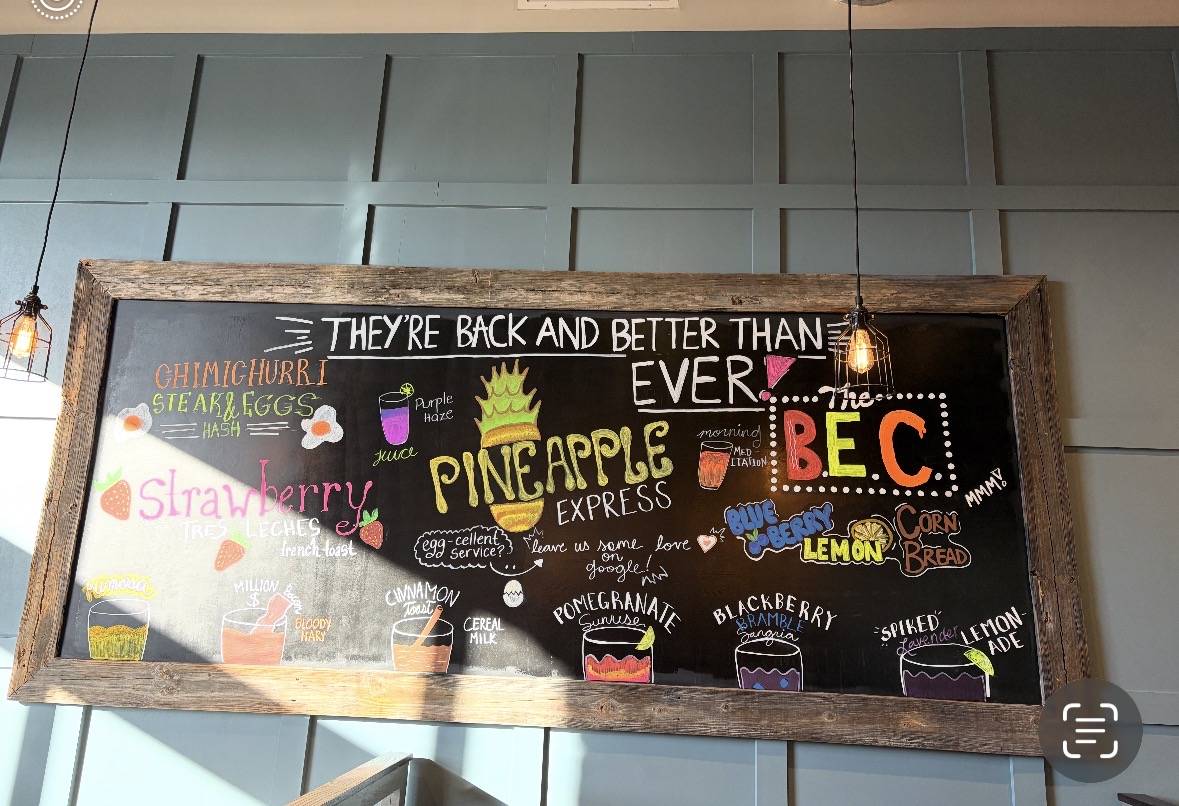 THEY'RE BACK AND BETTER THAN
EVER!
CHIMICHURRI
STEAK & EGGS
HASH
Purple
Haze
Juice
Strawberry
TRES LECHES
french toast
PINEAPPLE
EXPRESS
morning
MED
ITATION
The
B.E.C
MMM!
egg-cellent
Service?
leave us some love
on
google!
BLUE
BERRY
LEMON
CORN
BREAD
Mimosa
MILLION
$
Bacon
BLOODY
MARY
CINNAMON
Toast
CEREAL
MILK
POMEGRANATE
Sunrise
BLACKBERRY
BRAMBLE
Sangria
"SPIKED"
Lavender
LEMON-
ADE